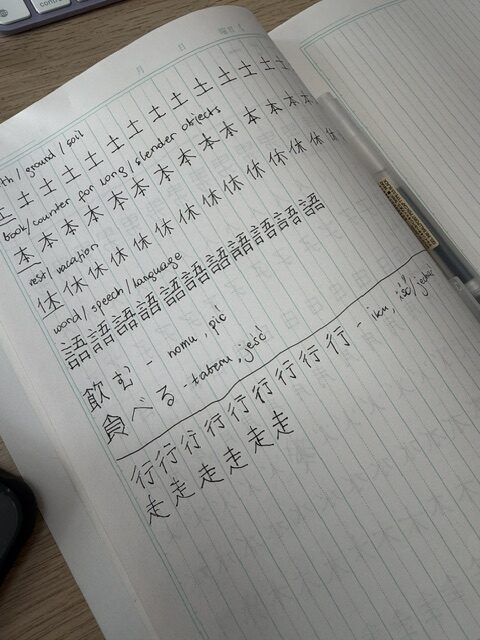 月 日 曜日
/ ground / soil
土土土土土土土土土土土土土土
book/counter for long/slender objects
本本本本本本本本本本本本本本
rest/vacation
休休休休休休休休休休休休休休
word/speech/language
語語語語語語語語語語語
飲む - nomu, pić
食べる - taberu, jeść
行行行行行行行行行 - iku, iść/
走走走走走走